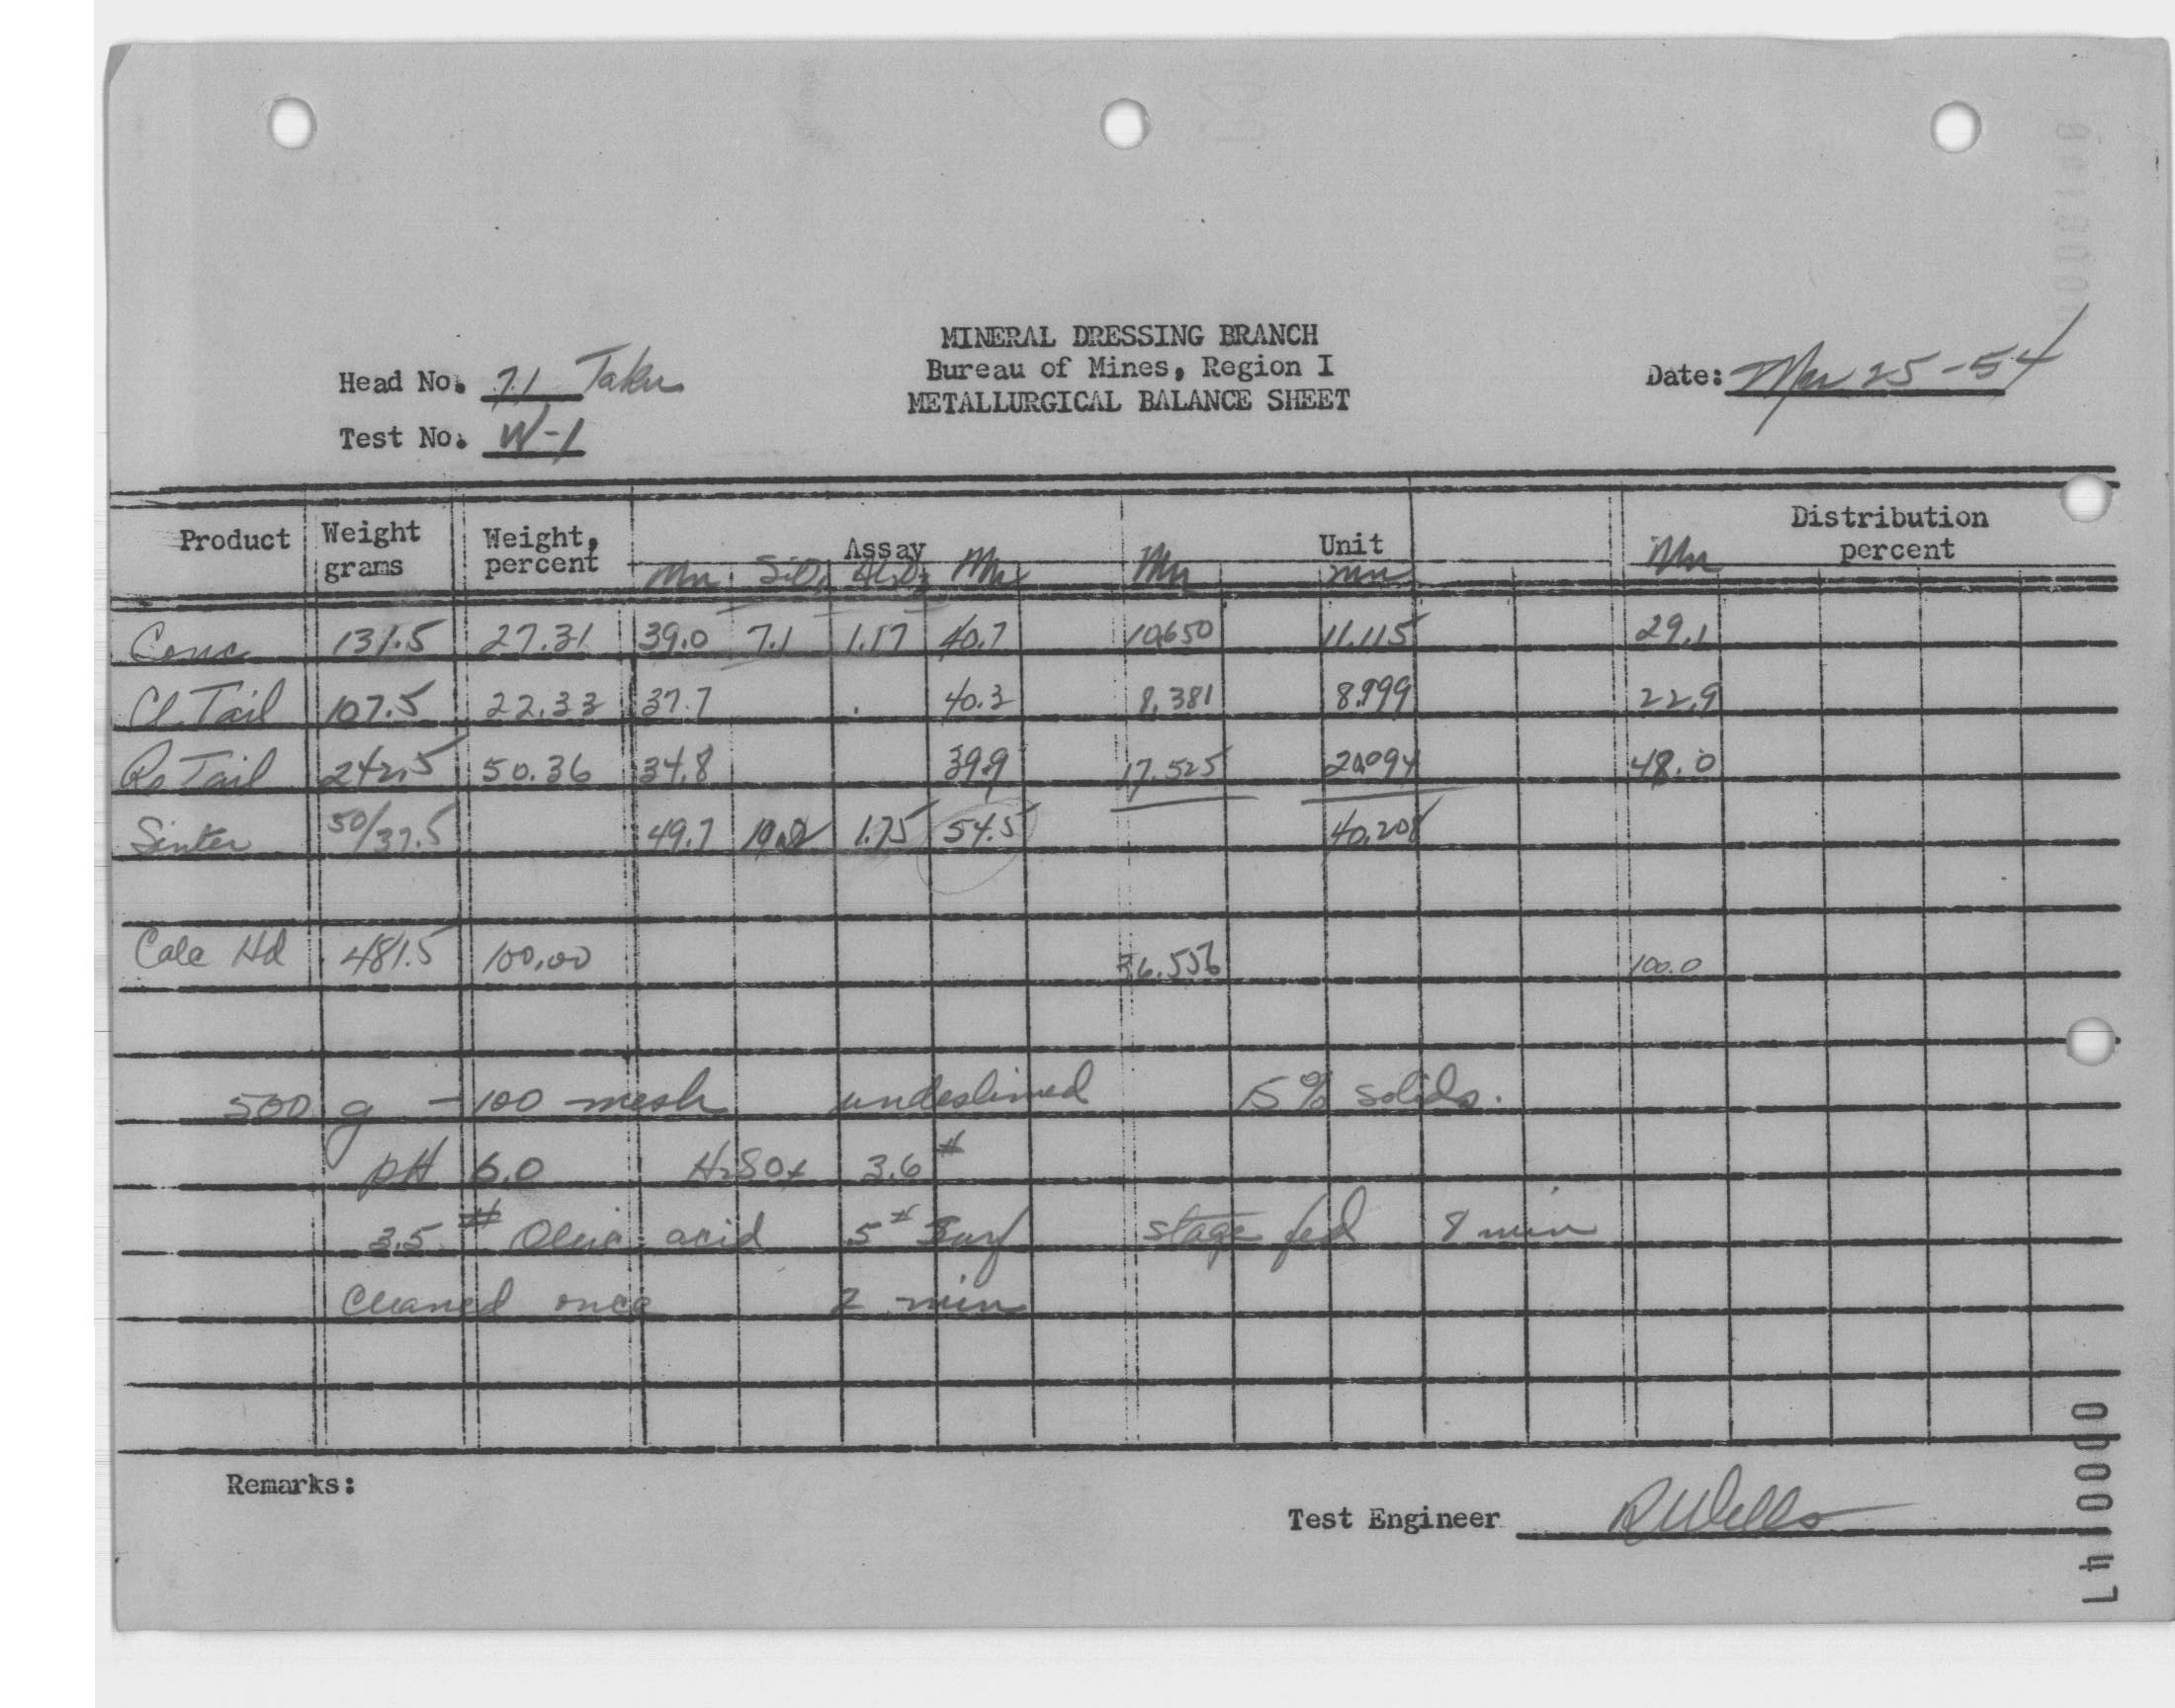 MINERAL DRESSING BRANCH
Bureau of Mines, Region I
METALLURGICAL BALANCE SHEET
Head No. 71 Taku
Test No. W-1
Date: Mar 25-54
Product Weight grams Weight, percent Assay Unit Distribution percent
Mn SiO2 Al2O3 Mn Mn Mn Mn
Conc 131.5 27.31 39.0 7.1 1.17 40.7 10.650 11.115 29.1
Cl. Tail 107.5 22.33 37.7 40.3 8.381 8.999 22.9
Ro Tail 242.5 50.36 34.8 39.9 17.525 20.094 48.0
Sinter 50/37.5 49.7 1.75 54.5 40.208
Calc Hd 481.5 100.00 36.556 100.0
500 g -100 mesh undeslimed 15% solids.
pH 6.0 H2SO4 3.6#
3.5# Oleic acid .5# stage fed 8 min
Cleaned once 2 min
Remarks:
Test Engineer RWells